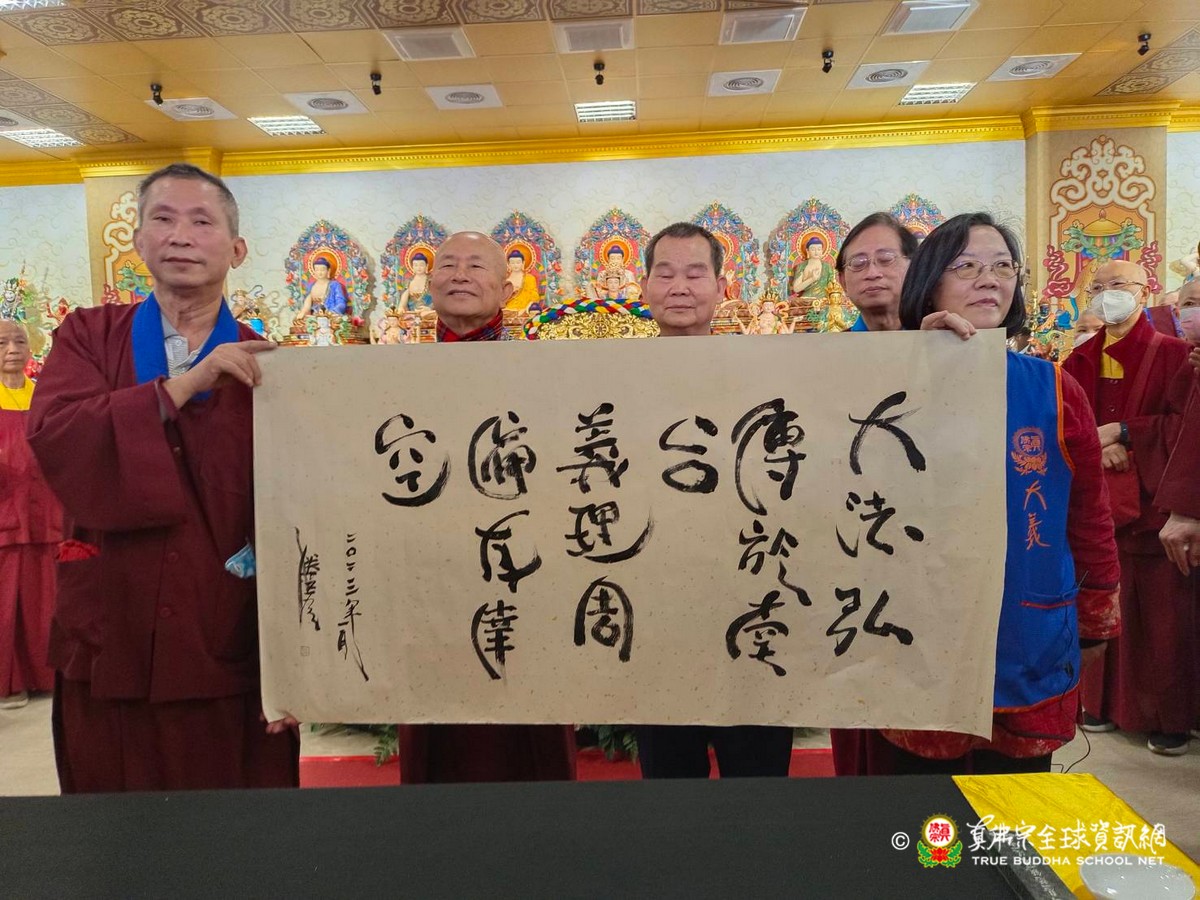 大法弘
傳於南
台
義理周
徧
空
二〇二三年一月
大義
©
真佛宗全球資訊網
TRUE BUDDHA SCHOOL NET